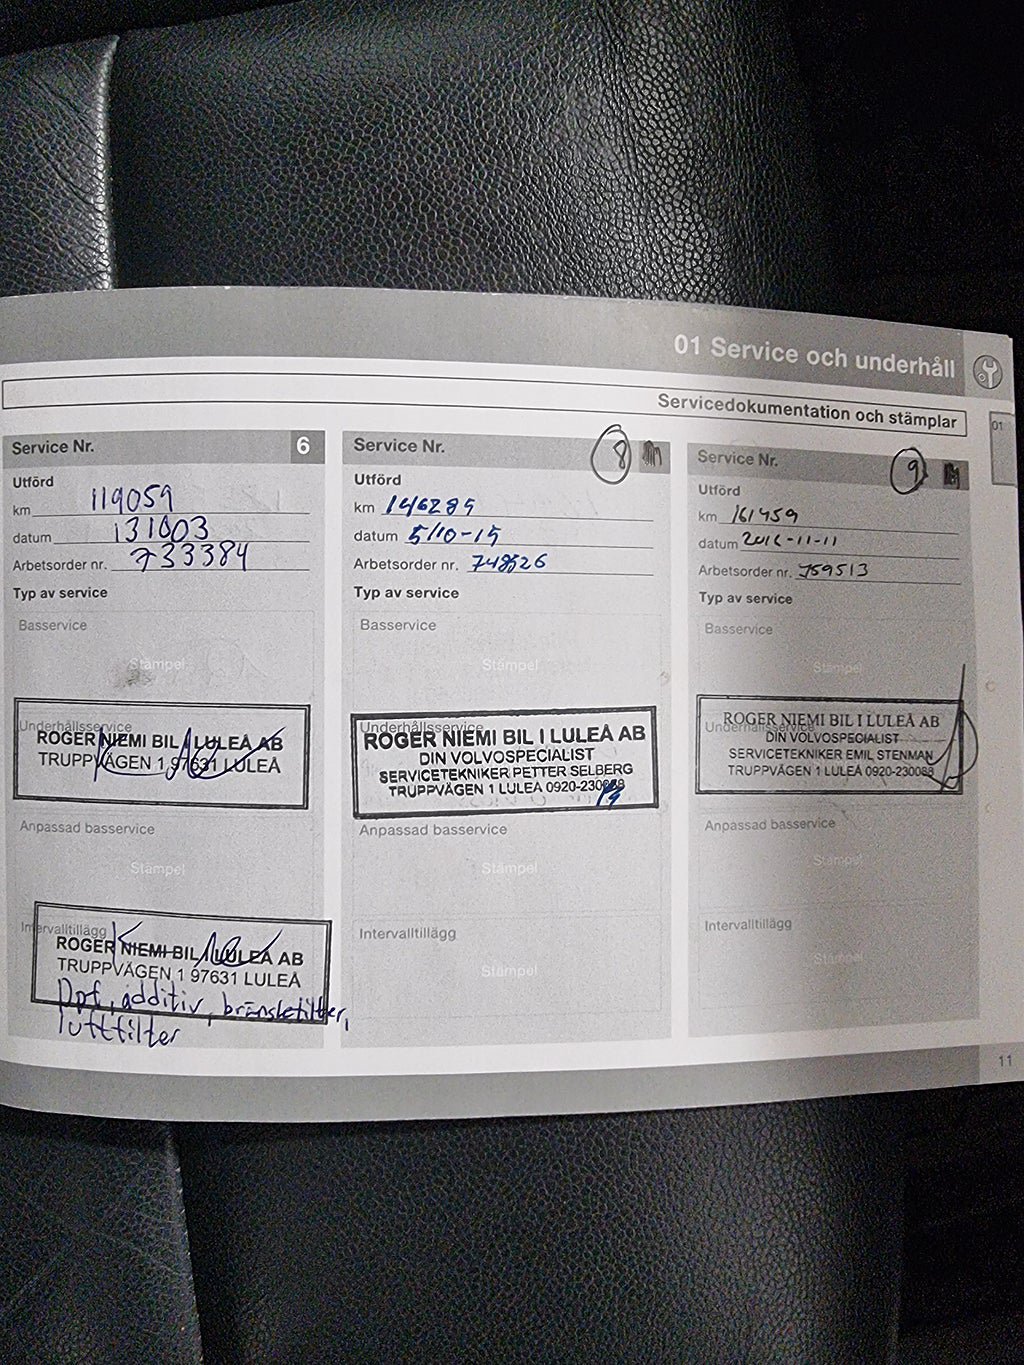 01 Service och underhåll
Servicedokumentation och stämplar
01
Service Nr. 6
Utförd
km 119059
datum 131003
Arbetsorder nr. 733384
Typ av service
Basservice
Stämpel
Underhållsservice
ROGER NIEMI BIL I LULEÅ AB
TRUPPVÄGEN 1 97631 LULEÅ
Anpassad basservice
Stämpel
Intervalltillägg
ROGER NIEMI BIL I LULEÅ AB
TRUPPVÄGEN 1 97631 LULEÅ
Dpf, additiv, bränslefilter,
luftfilter
Service Nr. 8
Utförd
km 146285
datum 5/10-15
Arbetsorder nr.
Typ av service
Basservice
Stämpel
Underhållsservice
ROGER NIEMI BIL I LULEÅ AB
DIN VOLVOSPECIALIST
SERVICETEKNIKER PETTER SELBERG
TRUPPVÄGEN 1 LULEÅ 0920-230088
Anpassad basservice
Stämpel
Intervalltillägg
Stämpel
Service Nr. 9
Utförd
km 161459
datum 2016-11-11
Arbetsorder nr. 759513
Typ av service
Basservice
Stämpel
Underhållsservice
ROGER NIEMI BIL I LULEÅ AB
DIN VOLVOSPECIALIST
SERVICETEKNIKER EMIL STENMAN
TRUPPVÄGEN 1 LULEÅ 0920-230088
Anpassad basservice
Stämpel
Intervalltillägg
Stämpel
11